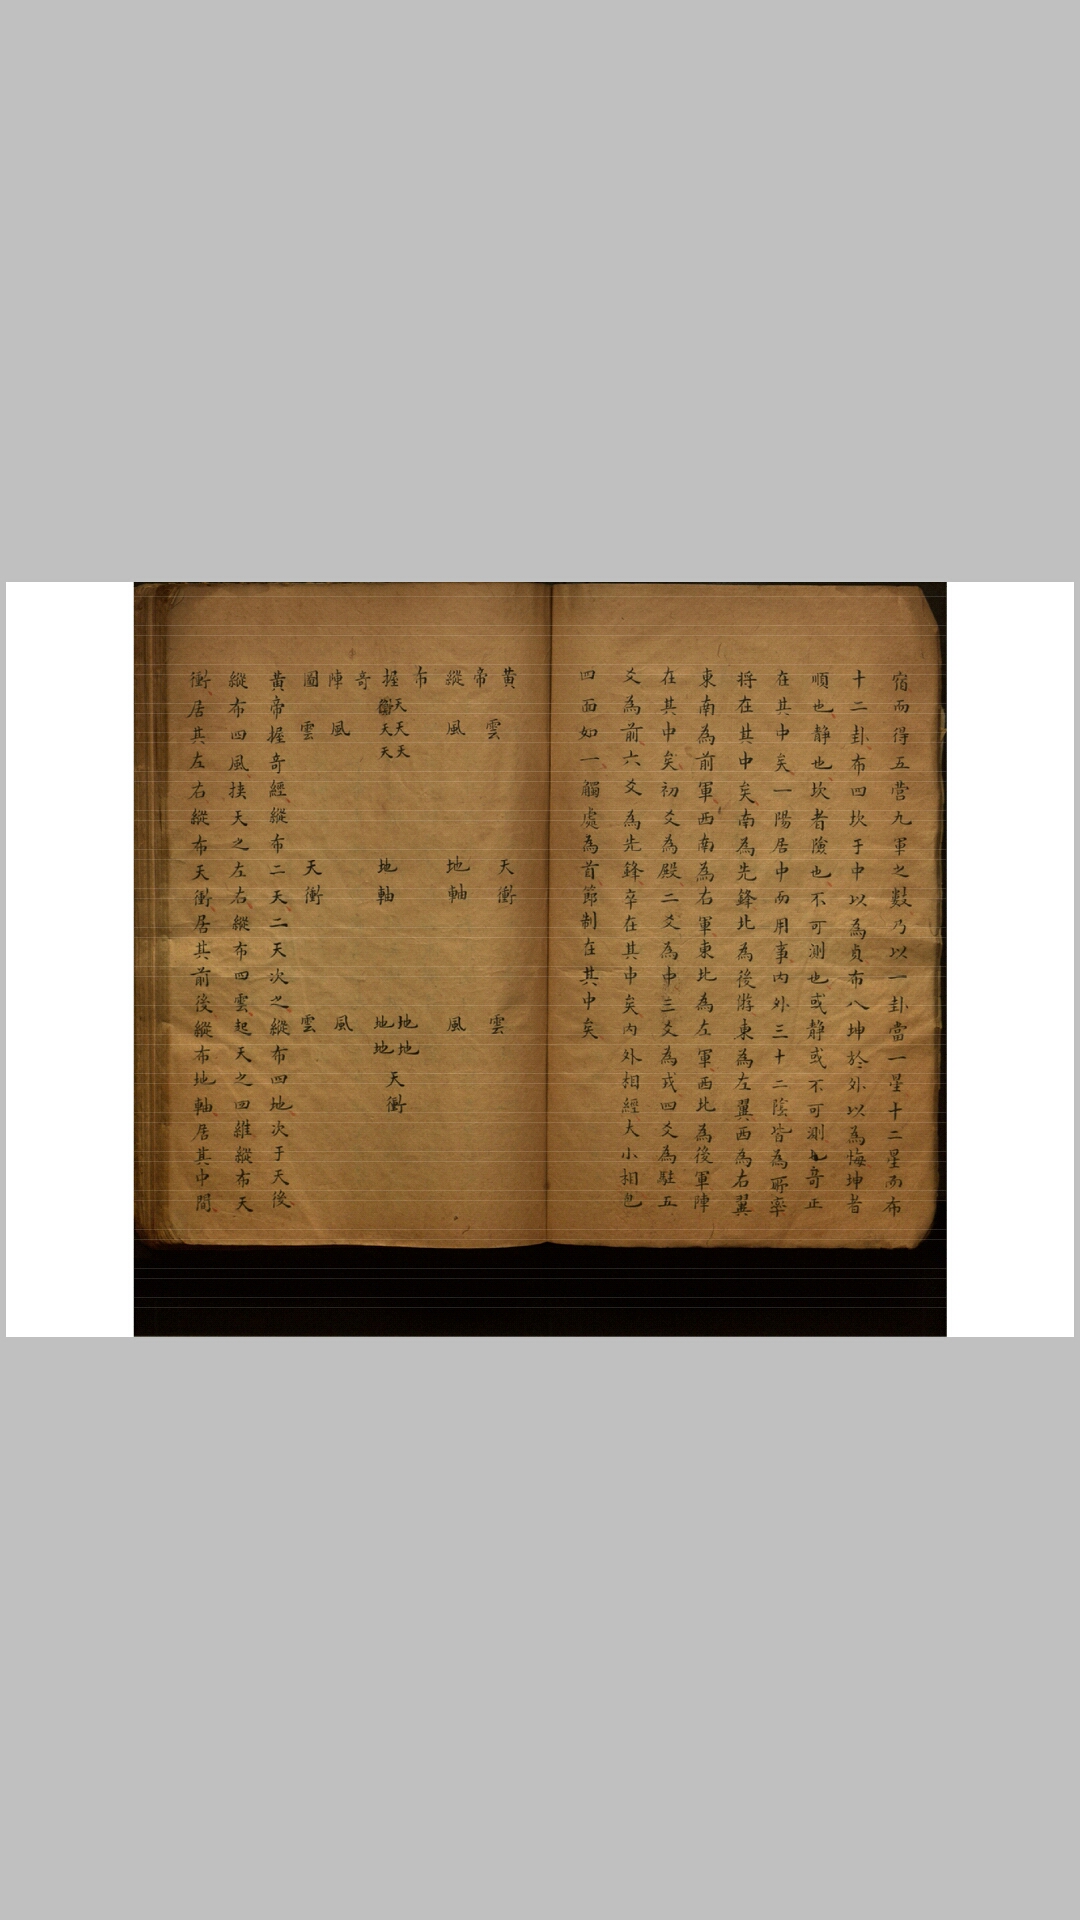 宿而得五營九軍之數乃以一卦當一星十二星而布
十二卦布四坎于中以為貞布八坤於外以為悔坤者
順也靜也坎者險也不可測也或靜或不可測也奇正
在其中矣一陽居中而用事內外三十二陰皆為所率
将在其中矣南為先鋒北為後游東為左翼西為右翼
東南為前軍西南為右軍東北為左軍西北為後軍陣
在其中矣初爻為殿二爻為中三爻為戎四爻為駐五
爻為前六爻為先鋒卒在其中矣內外相經大小相包
四面如一觸處為首節制在其中矣
黃帝縱布握奇陣圖
雲 天衝 雲
風 地軸 風
天天天
衝天天 地軸 地地 地地 天衝
風 風
雲 天衝 雲
黃帝握奇經縱布二天二天次之縱布四地次于天後
縱布四風挟天之左右縱布四雲起天之四維縱布天
衝居其左右縱布天衝居其前後縱布地軸居其中間